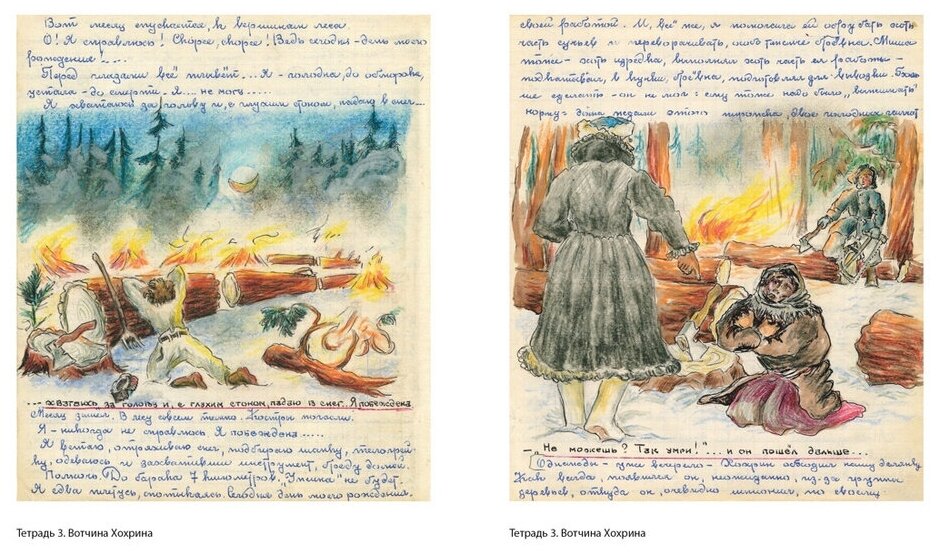 Вот месяц опускается, к вершинам леса.
О! Я справлюсь! Скорее, скорее! Ведь сегодня - день моего
рождения!....
Перед глазами всё плывёт... Я - голодна, до обморока,
устала - до смерти. Я.... не могу.....
Я хватаюсь за голову и, с глухим стоном, падаю в снег...
--- хватаюсь за голову и, с глухим стоном, падаю в снег.. Я побеждена
Месяц зашел. В лесу совсем темно. Костры погасли.
Я - никогда не справлюсь Я побеждена.....
Я встаю, отряхиваю снег, подбираю шапку, телогрей-
ку, одеваюсь и захвативши инструмент, бреду домой.
Полночь. До барака 7 километров. "Ужина" не будет.
Я едва плетусь, спотыкаясь. Сегодня день моего рождения.
Тетрадь 3. Вотчина Хохрина
своей работой. И, всё же, я помогала ей обрубать хоть
часть сучьев и переворачивать, особ бревна. Миша
тоже - хоть изредка, выполнял хоть часть её работы -
подкатывал, в бревна, для вывозки. Боль-
ше сделать - он не мог: ему тоже надо было "
норму:
"Не можешь? Так умри!"... и он пошёл дальше...
Однажды - уже вечерело - Хохрин обходил нашу делянку
Как всегда, появился он, неожиданно, из-за группы
деревьев, откуда он, очевидно шпионил, по своему
Тетрадь 3. Вотчина Хохрина